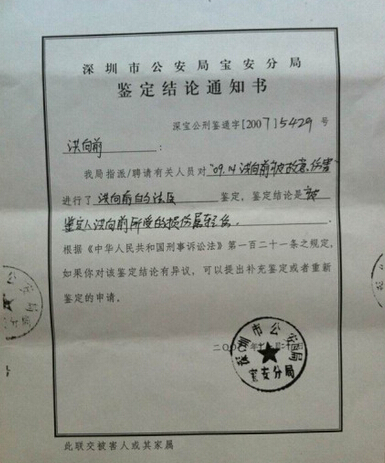 深圳市公安局宝安分局
鉴定结论通知书
深宝公刑鉴通字[2007]5429号
洪向前:
我局指派/聘请有关人员对"09.14洪向前被故意伤害"
进行了洪向前的法医鉴定,鉴定结论是被
鉴定人洪向前所受的损伤属轻伤。
根据《中华人民共和国刑事诉讼法》第一百二十一条之规定,
如果你对该鉴定结论有异议,可以提出补充鉴定或者重新
鉴定的申请。
二〇〇
深圳市公安局
宝安分局
此联交被害人或其家属